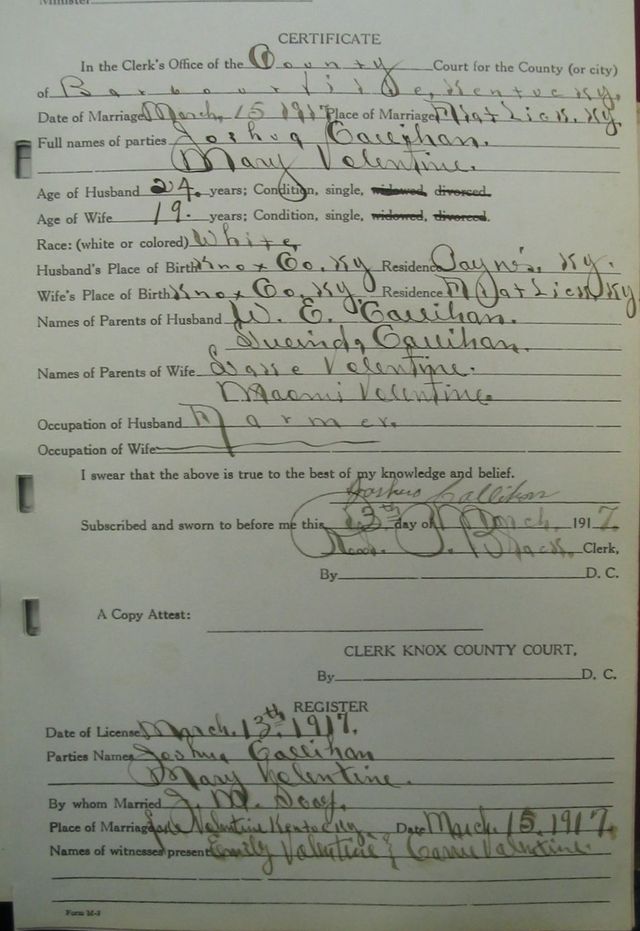 Minister
CERTIFICATE
In the Clerk's Office of the County Court for the County (or city)
of Barbourville, Kentucky.
Date of Marriage March, 15 1917 Place of Marriage Flat Lick, Ky.
Full names of parties Joshua Callihan.
Mary Valentine.
Age of Husband 24. years; Condition, single, widowed, divorced.
Age of Wife 19. years; Condition, single, widowed, divorced.
Race: (white or colored) White,
Husband's Place of Birth Knox Co. Ky Residence Payne's, Ky.
Wife's Place of Birth Knox Co. Ky. Residence Flat Lick Ky
Names of Parents of Husband W. E. Callihan.
Callihan.
Names of Parents of Wife Valentine.
Naomi Valentine.
Occupation of Husband Farmer.
Occupation of Wife
I swear that the above is true to the best of my knowledge and belief.
Joshua Callihan
Subscribed and sworn to before me this 13th day of March, 1917.
Clerk,
By D. C.
A Copy Attest:
CLERK KNOX COUNTY COURT,
By D. C.
REGISTER
Date of License March. 13th. 1917.
Parties Names Joshua Callihan
Mary Valentine.
By whom Married J. M.
Place of Marriage Valentine Kentucky Date March. 15. 1917.
Names of witnesses present Emily Valentine & Carrie Valentine.
Form M-3